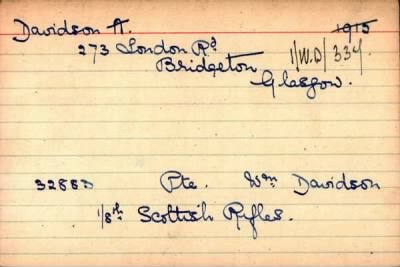 Davidson A. 1915
273 London Rd 1/W.D/334.
Bridgeton
Glasgow.
32883 Pte. Wm Davidson
1/8th Scottish Rifles.